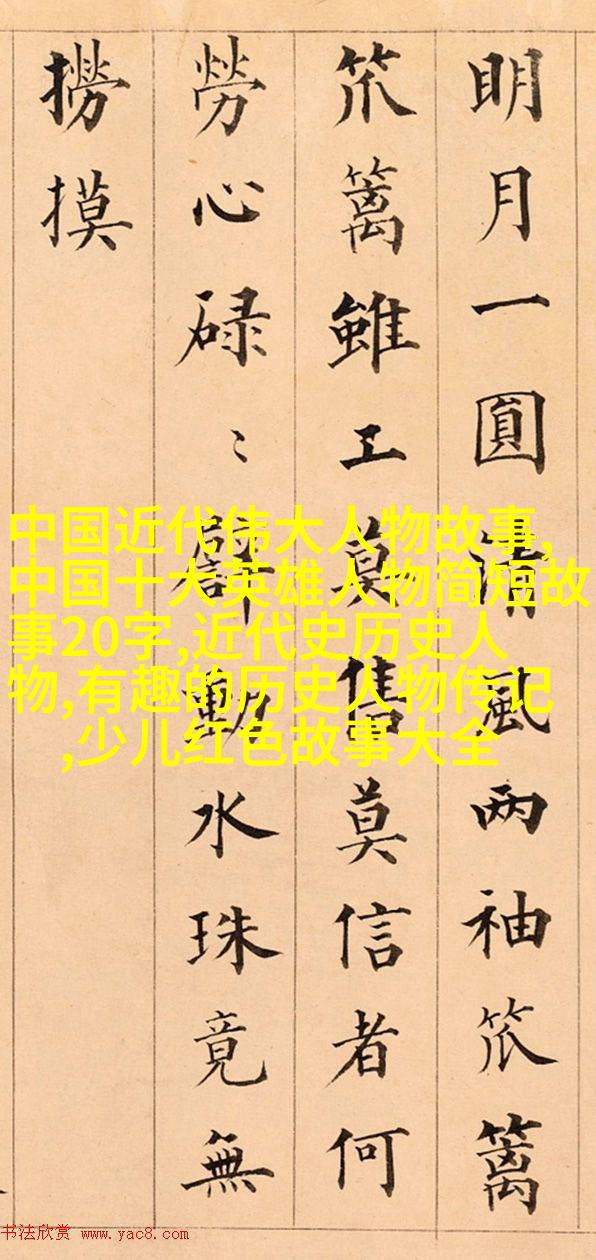 明月一圓清風两袖笊篱
笊篱雖工莫售莫信者何
勞心碌〻動水珠竟無
撈摸
中国近代伟大人物故事,
中国十大英雄人物简短故
事20字,近代史历史人
物,有趣的历史人物传记
,少儿红色故事大全
书法欣赏 www.yac8.com